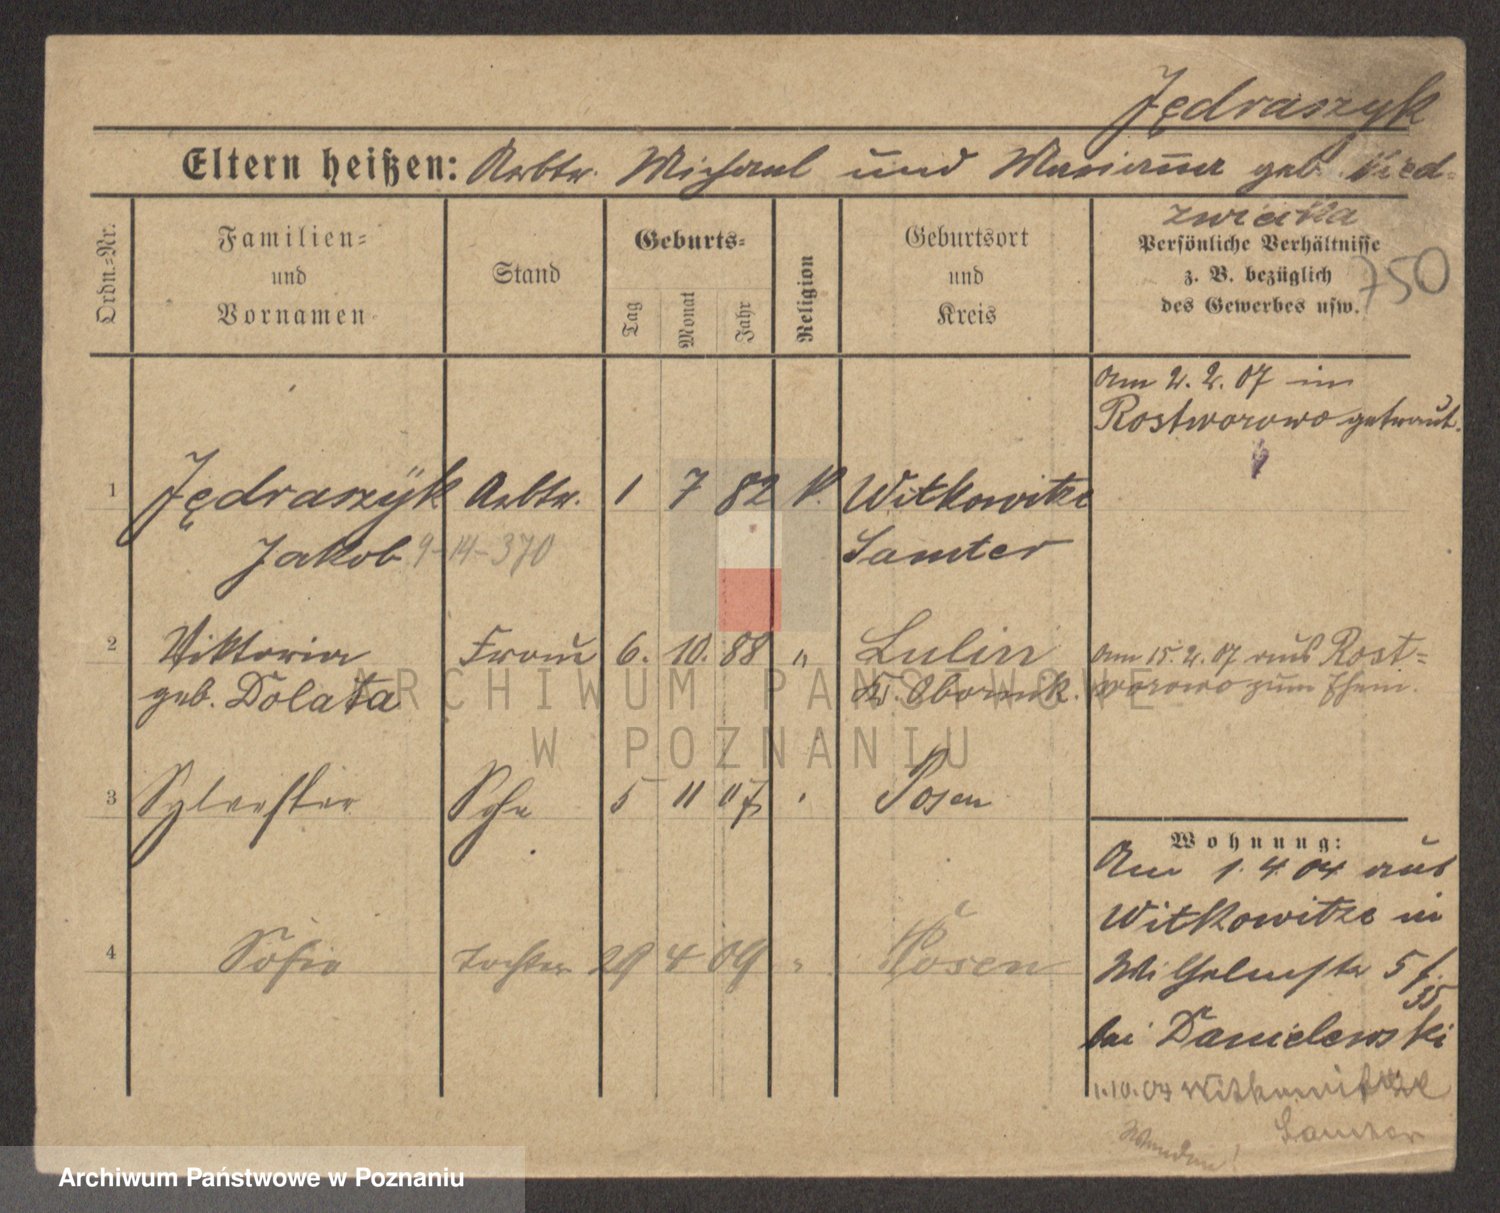 Jędraszyk
Eltern heißen: Arbtr. Michael und Marianna geb. Nied-
zwiecka
Ordn.-Nr.
Familien-
und
Vornamen
Stand
Geburts-
Tag
Monat
Jahr
Religion
Geburtsort
und
Kreis
Persönliche Verhältnisse
z. B. bezüglich
des Gewerbes usw.
750
Am 2. 2. 07 in
Rostworowo getraut.
1 Jędraszÿk Arbtr. 1 7 82 K. Witkowitze
Jakob 9-14-370 Samter
2 Viktoria Frau 6. 10. 88 " Lulin
geb. Dolata Kr. Obornik.
am 15. 2. 07 aus Rost-
worowo zum Ehem.
3 Sylvester Sohn 5 11 07 " Posen
4 Sofie Tochter 29 4 09 " Posen
Wohnung:
Am 1. 4 04 aus
Witkowitze in
Wilhelmstr 5
35
bei Danielewski
1.10.04 Witkowitze
Samter
Wenden!
ARCHIWUM PAŃSTWOWE
W POZNANIU
Archiwum Państwowe w Poznaniu